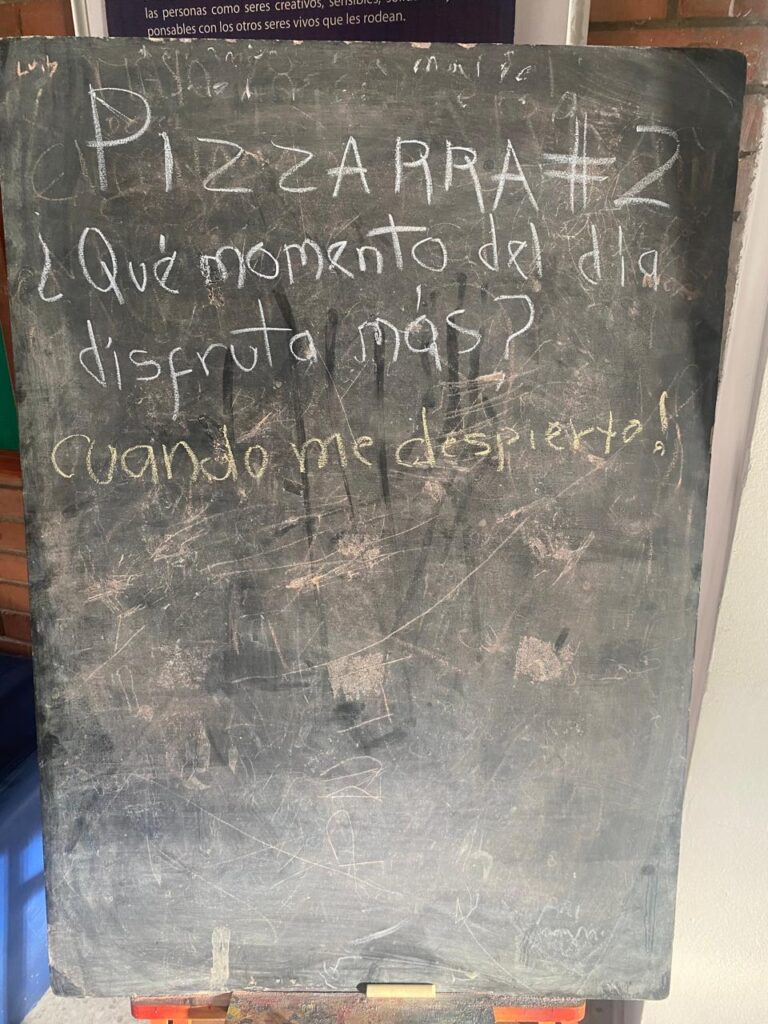 las personas como seres creativos, sensibles,
ponsables con los otros seres vivos que les rodean.
Luis
PIZZARRA #2
¿Qué momento del día
disfruta más?
cuando me despierto!